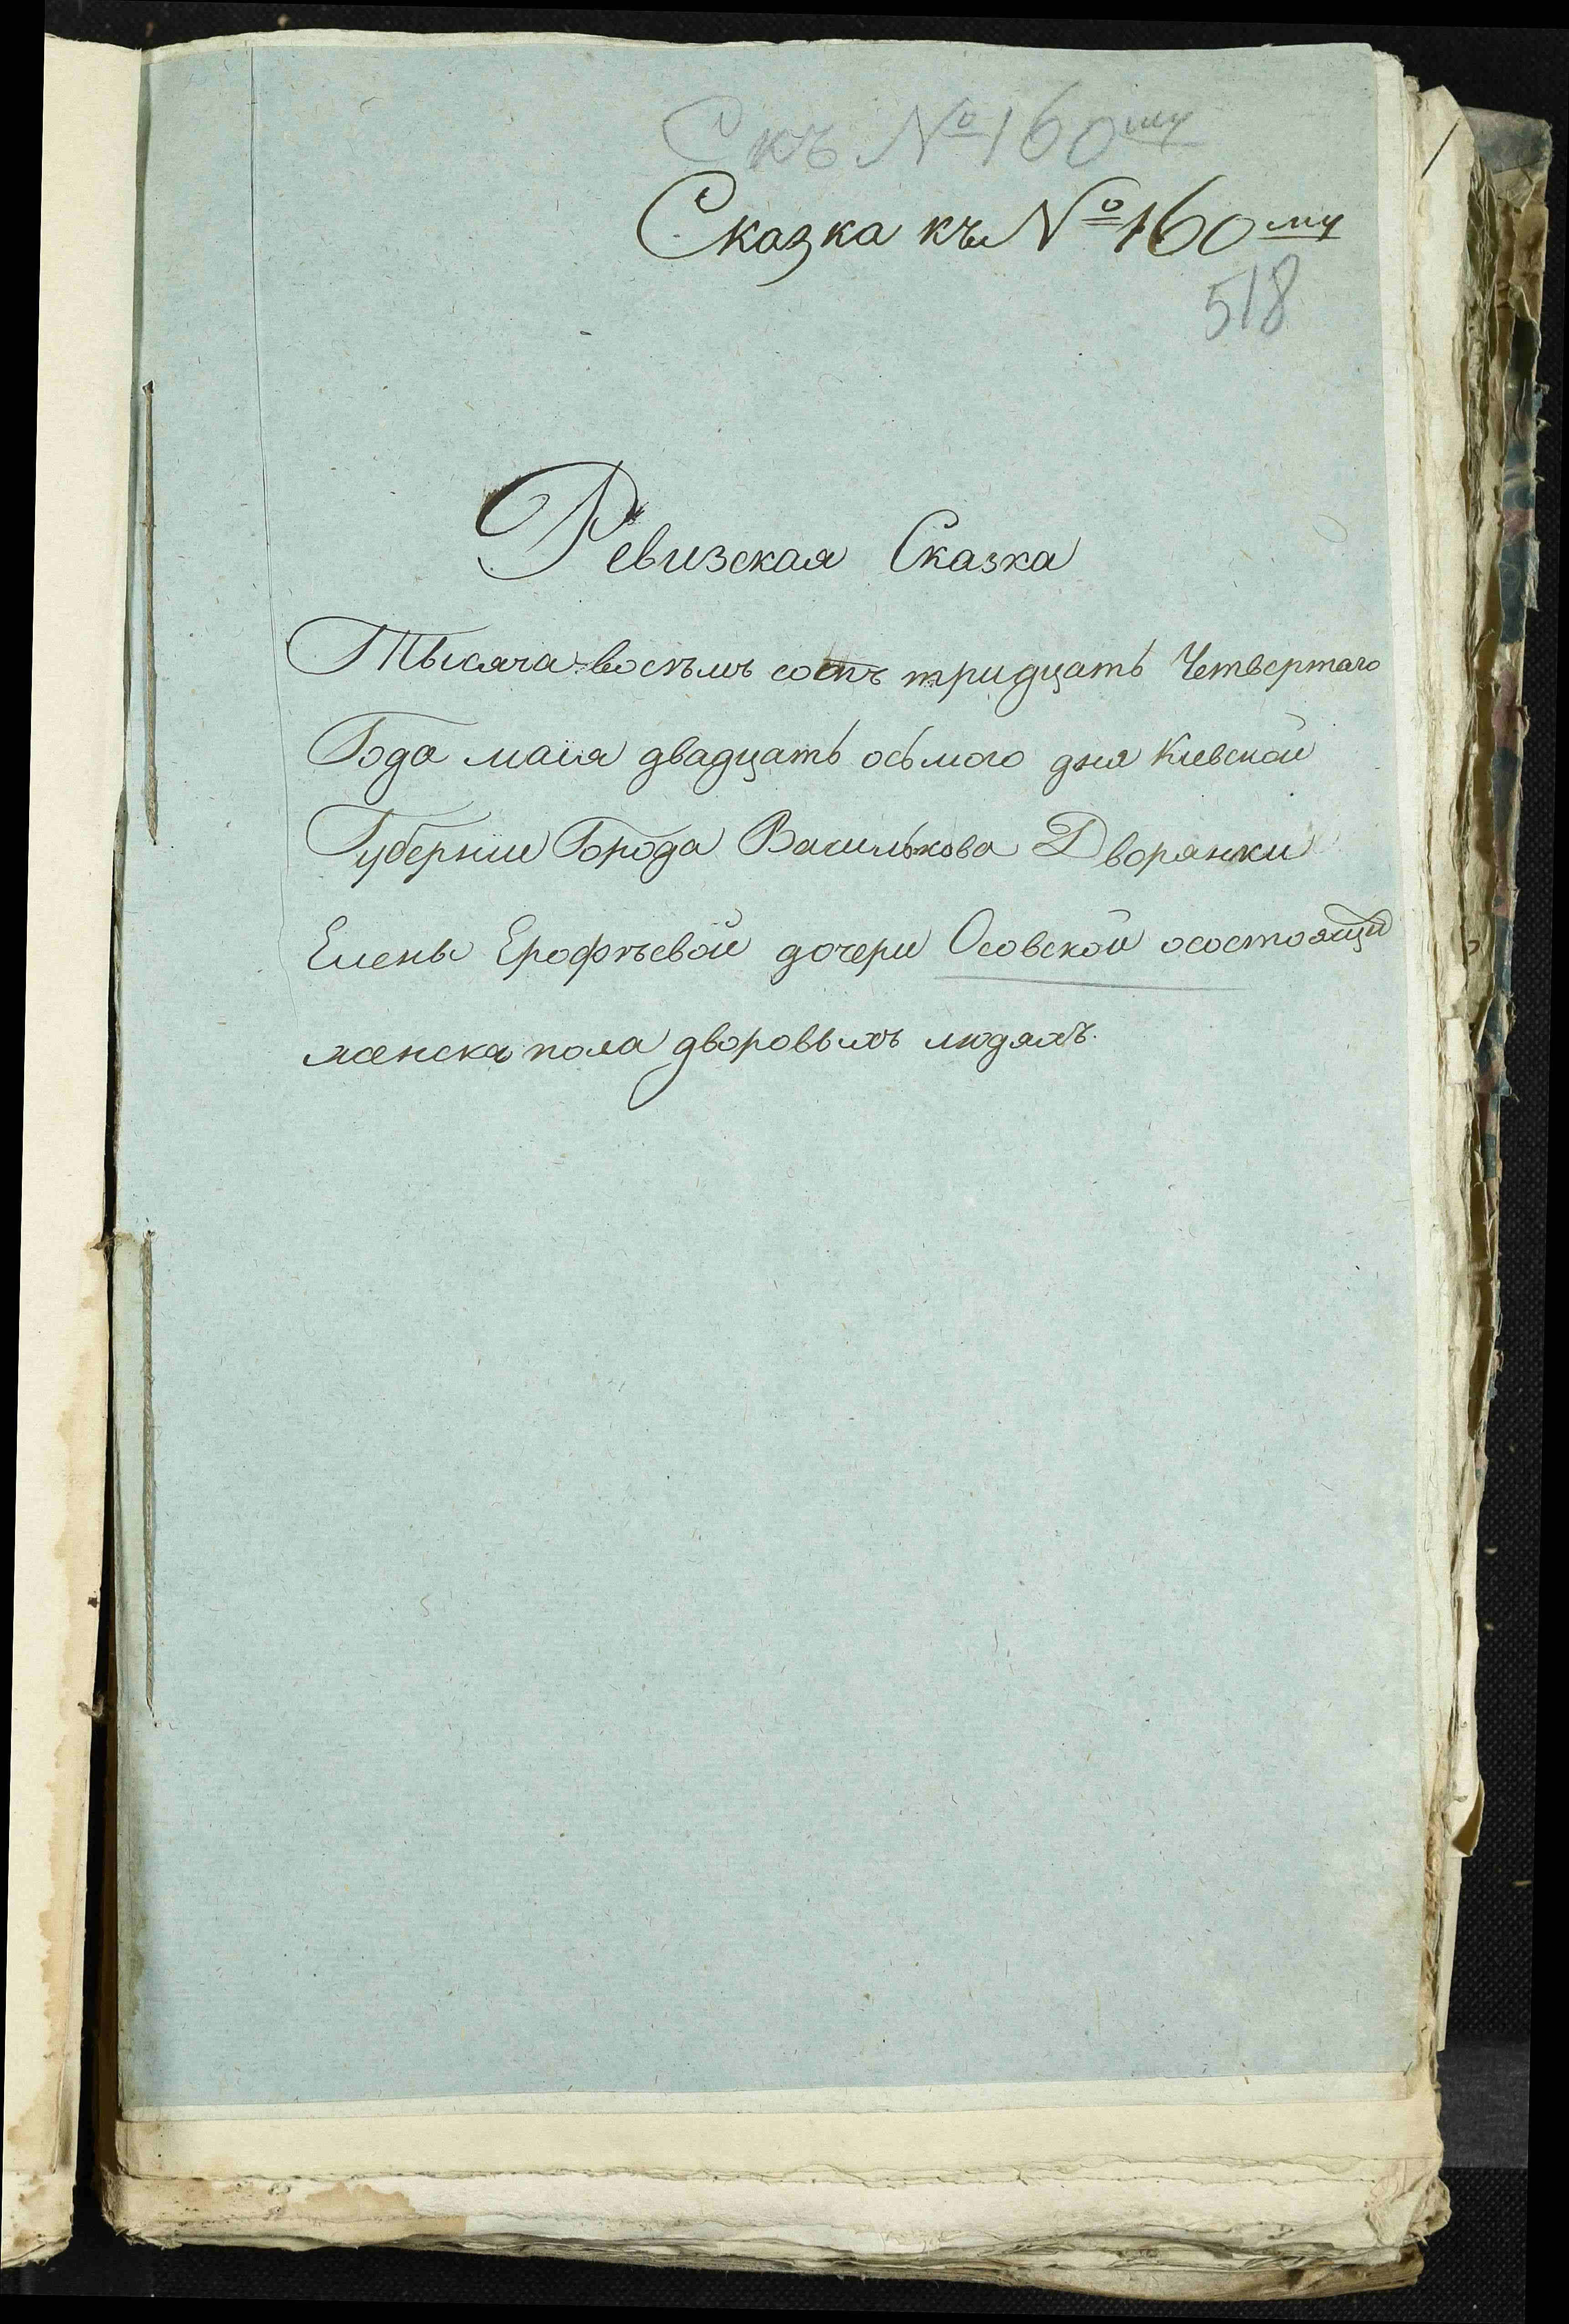 С къ № 160му
Сказка къ № 160му
518
Ревизская Сказка
Тысяча восѣмъ сотъ тридцать Четвертаго
Года маія двадцать осьмого дня Кіевской
Губерніи Города Василькова Дворянки
Елены Ерофѣевой дочери Осовской осостоящи
женска пола дворовыхъ людяхъ.